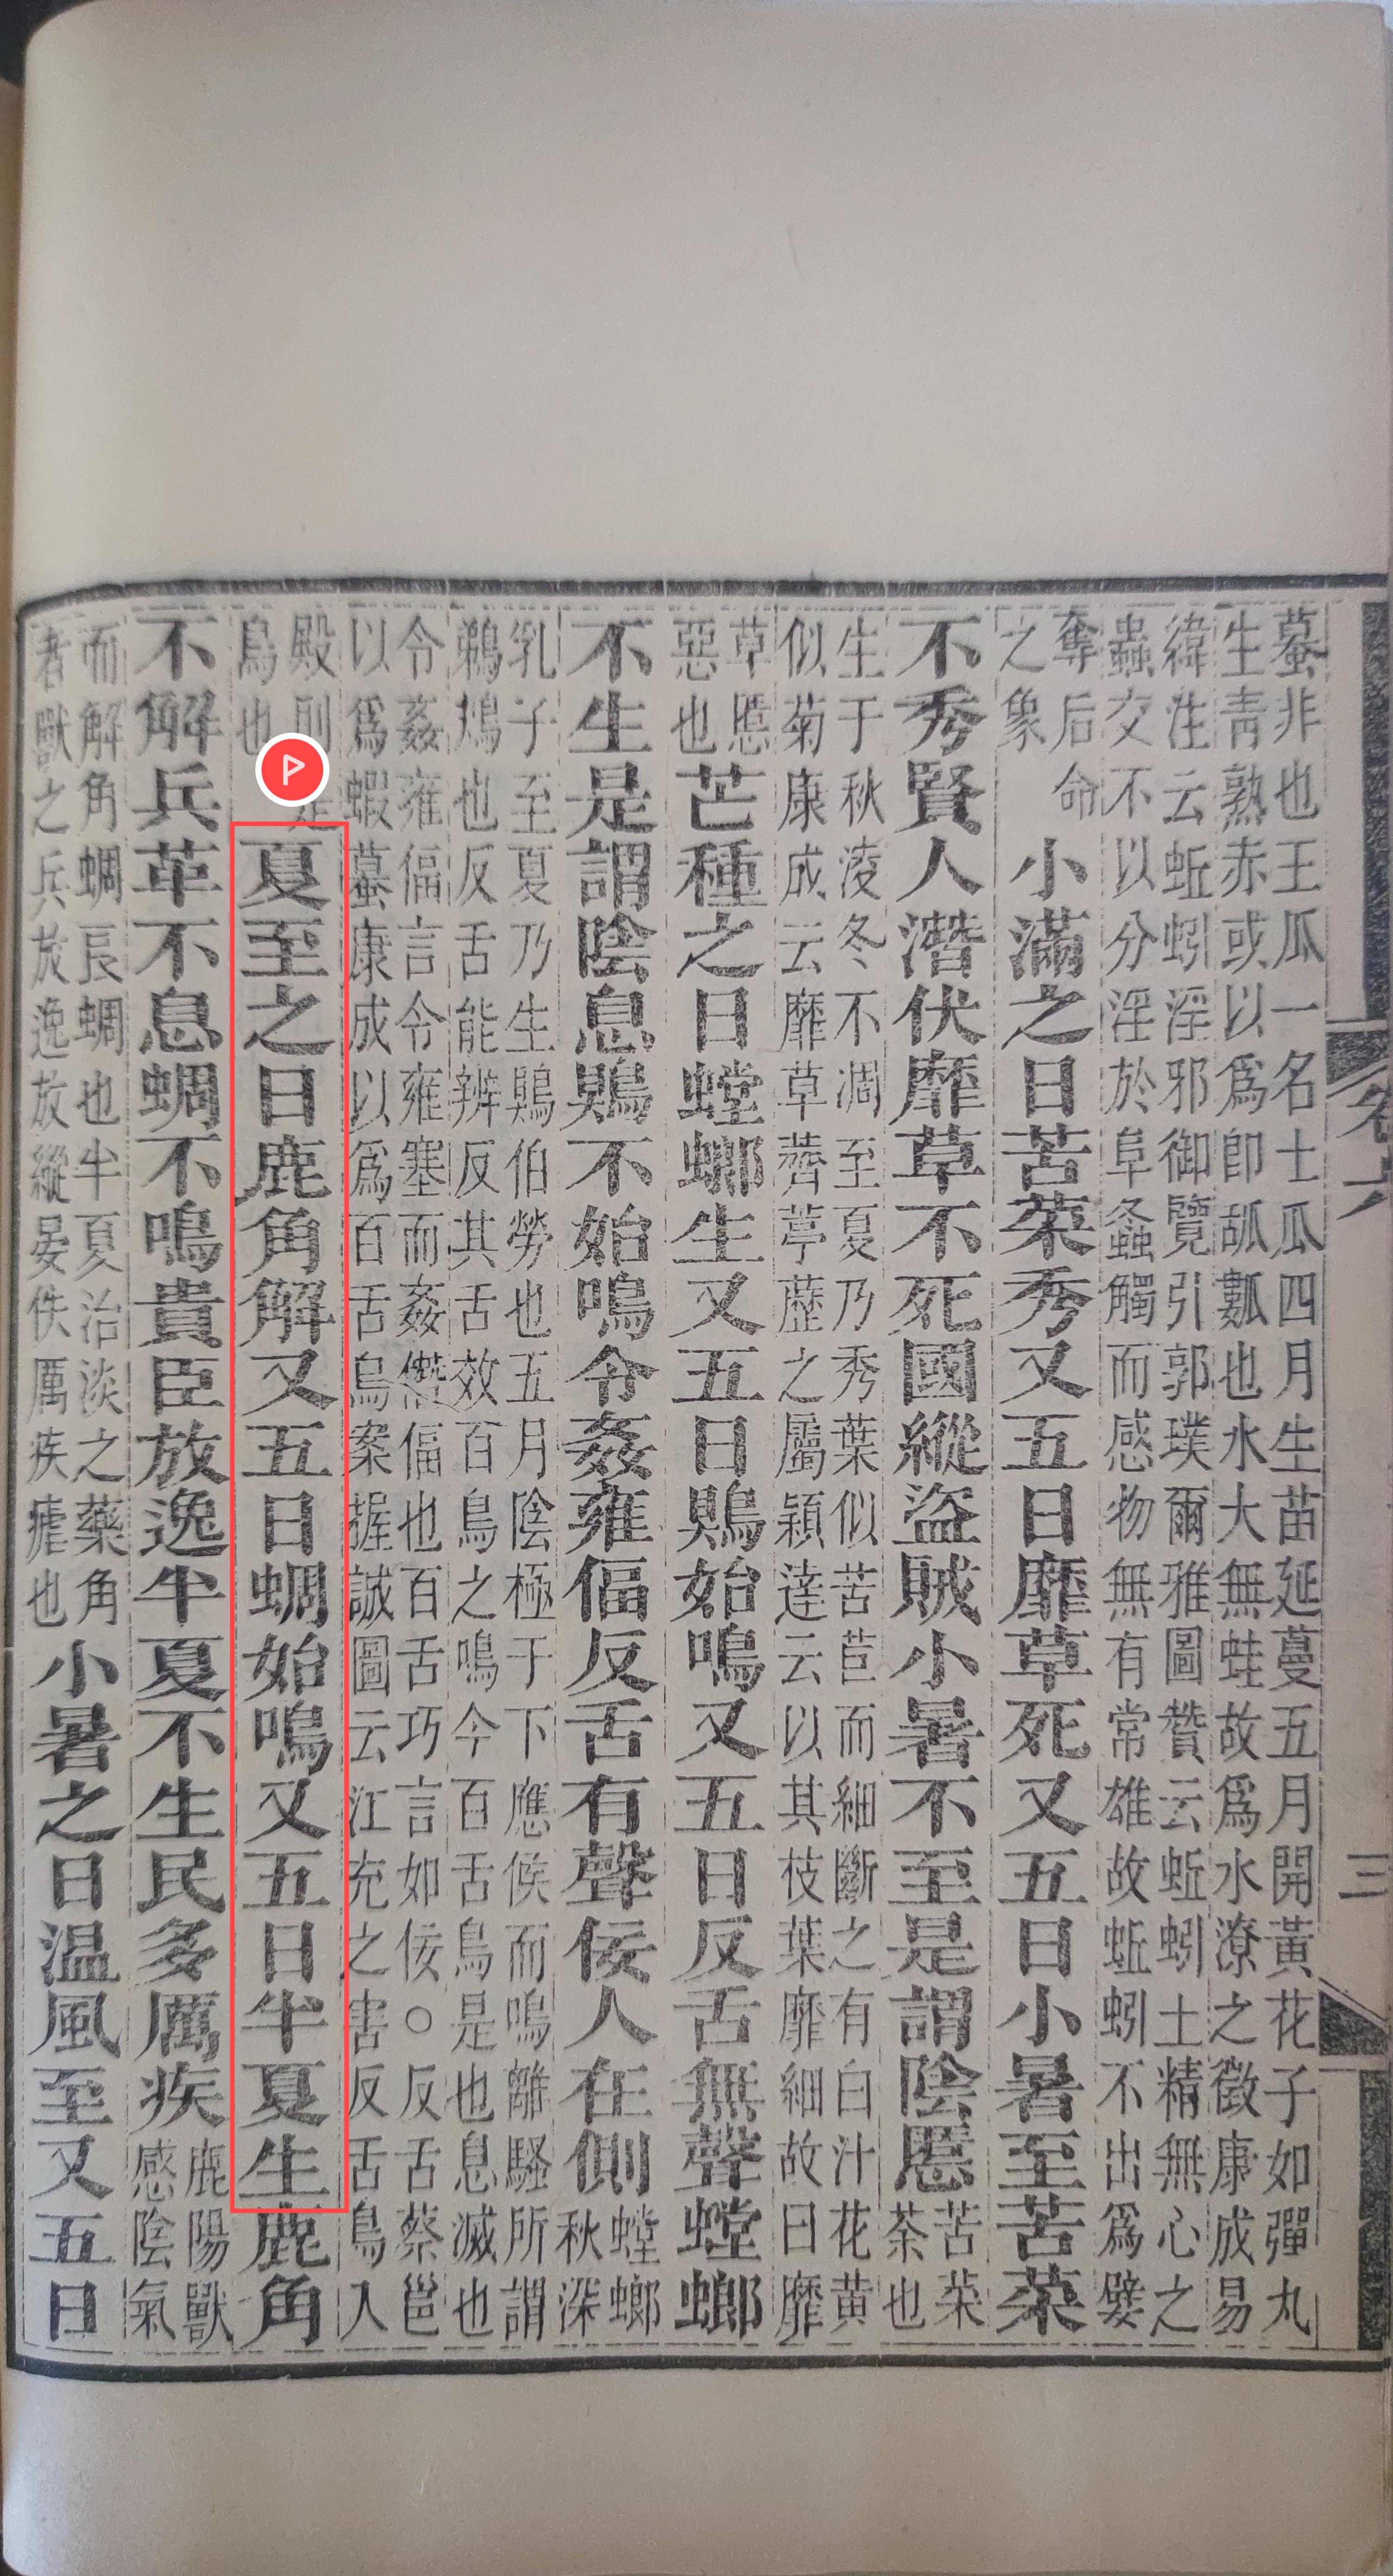 卷六
三
蟇非也王瓜一名土瓜四月生苗延蔓五月開黃花子如彈丸
生青熟赤或以爲卽也水大無蛙故爲水潦之徵康成易
緯注云蚯蚓淫邪御覽引郭璞爾雅圖贊云蚯蚓土精無心之
蟲交不以分淫於阜螽觸而感物無有常雄故蚯蚓不出爲嬖
奪后命
之象
小滿之日苦菜秀又五日靡草死又五日小暑至苦菜
不秀賢人潛伏靡草不死國縱盜賊小暑不至是謂陰慝
苦菜
荼也
生于秋淩冬不凋至夏乃秀葉似苦苣而細斷之有白汁花黃
似菊康成云靡草薺葶藶之屬穎達云以其枝葉靡細故曰靡
草慝
惡也
芒種之日螳螂生又五日鶪始鳴又五日反舌無聲螳螂
不生是謂陰息鶪不始鳴令姦雍偪反舌有聲佞人在側
螳螂
秋深
乳子至夏乃生鶪伯勞也五月陰極于下應候而鳴離騷所謂
鵜鴂也反舌能辨反其舌效百鳥之鳴今百舌鳥是也息滅也
令姦雍偪言令雍塞而姦僭偪也百舌巧言如佞○反舌蔡邕
以爲蝦蟇康成以爲百舌鳥案握誠圖云江充之害反舌鳥入
殿則是
鳥也
夏至之日鹿角解又五日蜩始鳴又五日半夏生鹿角
不解兵革不息蜩不鳴貴臣放逸半夏不生民多厲疾
鹿陽獸
感陰氣
而解角蜩長蜩也半夏治淡之藥角
者獸之兵放逸放縱晏佚厲疾瘧也
小暑之日温風至又五日